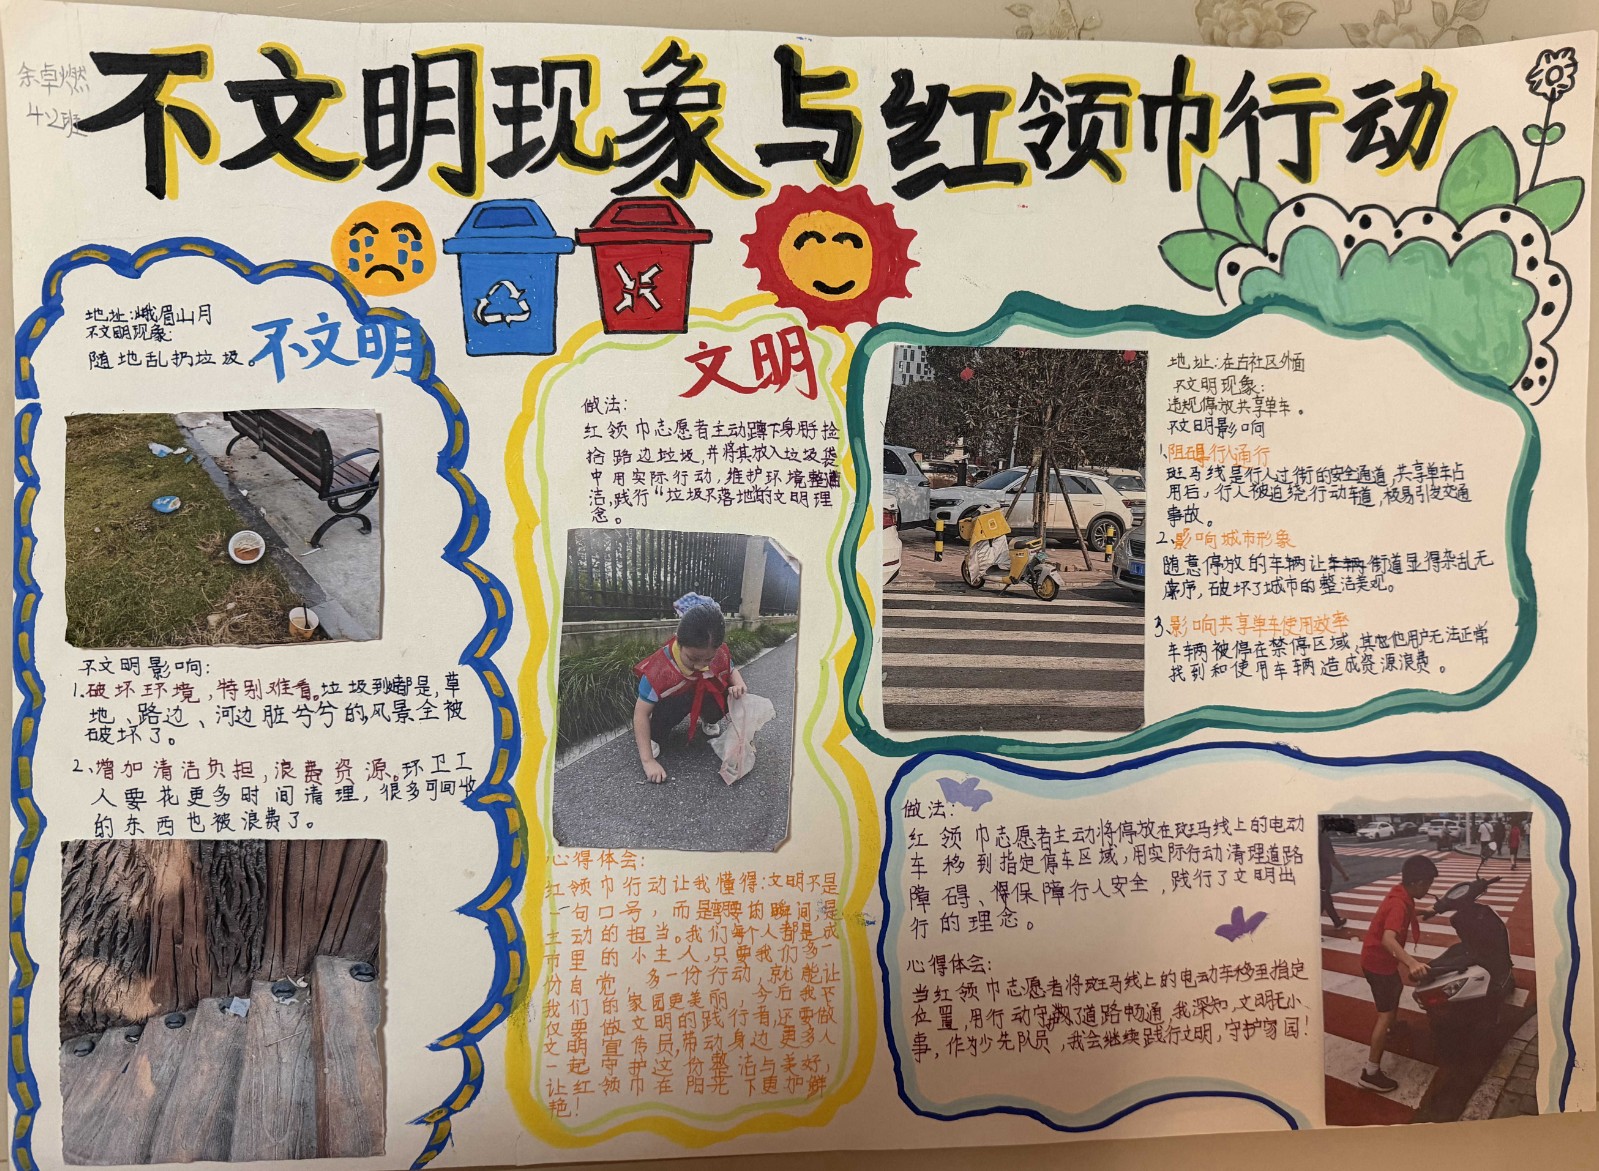 余卓燃
4.2班
不文明现象与红领巾行动
地址:峨眉山月
不文明现象:
随地乱扔垃圾。
不文明
不文明影响:
1.破坏环境,特别难看。垃圾到都是,草
地、路边、河边脏兮兮的,风景全被
破坏了。
2、增加清洁负担,浪费资源。环卫工
人要花更多时间清理,很多可回收
的东西也被浪费了。
文明
做法:
红领巾志愿者主动蹲下身躬捡
拾路边垃圾,并将其放入垃圾袋
中用实际行动,维护环境整
洁,践行“垃圾不落地”的文明理
念。
心得体会:
红领巾行动让我懂得:文明不是
一句口号,而是弯腰的瞬间,是
主动的担当。我们每个人都是城
市里的小主人,只要我们多一
份自觉,多一份行动,就能让
我们的家园更美丽,今后我不
仅要做文明的践行者还要做
文明宣传员,带动身边更多人
一起守护这份整洁与美好,
让红领巾在阳光下更加鲜
艳!
地址:在古社区外面
不文明现象:
违规停放共享单车。
不文明影响
1.阻碍行人通行
斑马线是行人过街的安全通道,共享单车占
用后,行人被迫绕行动车道,极易引发交通
事故。
2、影响城市形象
随意停放的车辆让车辆街道显得杂乱无
序,破坏了城市的整洁美观。
3、影响共享单车使用效率
车辆被停在禁停区域,其他用户无法正常
找到和使用车辆造成资源浪费。
做法:
红领巾志愿者主动将停放在斑马线上的电动
车移到指定停车区域,用实际行动清理道路
障碍、保障行人安全,践行了文明出
行的理念。
心得体会:
当红领巾志愿者将斑马线上的电动车移至指定
位置,用行动守护了道路畅通,我深知,文明无小
事,作为少先队员,我会继续践行文明,守护家园!